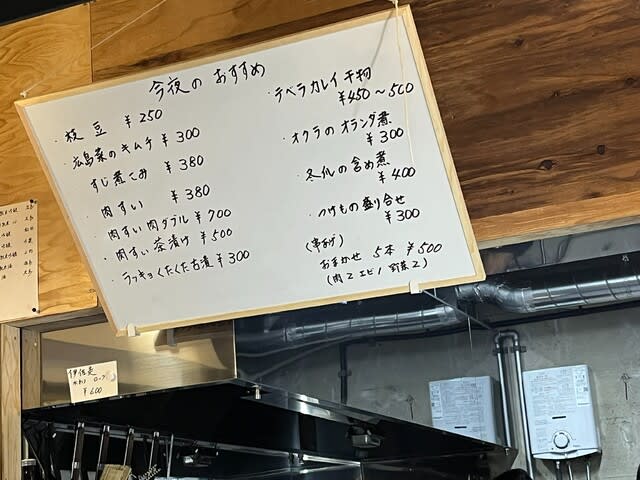 今夜の おすすめ
・枝豆 ¥250
・広島菜のキムチ ¥300
すじ煮こみ ¥380
・肉すい ¥380
肉すい肉ダブル ¥700
・肉すい茶漬け ¥500
・ラッキョくたくた古漬 ¥300
・デベラカレイ干物
¥450〜500
・オクラのオランダ煮
¥300
・冬瓜の含め煮
¥400
・つけもの盛り合せ
¥300
(串あげ)
おまかせ 5本 ¥500
(肉2 エビ1 野菜2)
¥600